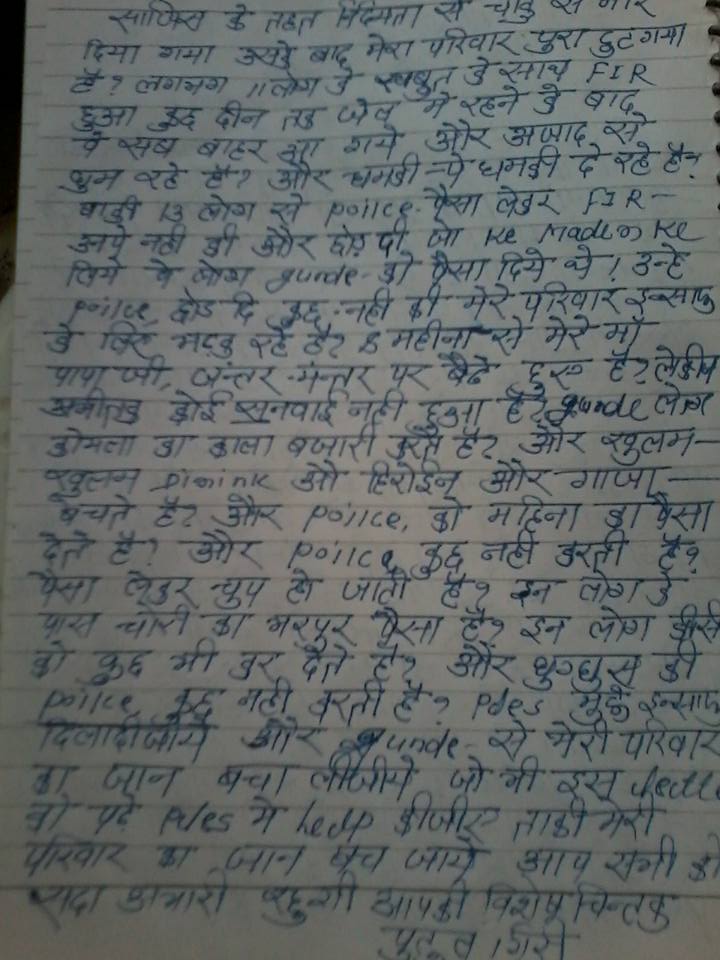 साजिस के तहत निर्ममता से चाकु से मार
दिया गया उसके बाद मेरा परिवार पुरा टुट गया
है? लगभग 11 लोग के खिलाफ के साथ FIR
हुआ कुछ दीन तक जेल मे रहने के बाद
वे सब बाहर आ गये और अजाद से
घुम रहे है? और धमकी पे धमकी दे रहे है?
बाकी 13 लोग से police पैसा लेकर FIR-
नही की और छोड़ दी जो
लिये वे लोग gunde को पैसा दिये थे! उन्हे
police छोड दि कुछ नही की मेरे परिवार इन्साफ
के लिए भटक रहे है? 8 महीना से मेरे माँ
पापा जी, जन्तर-मन्तर पर बैठे हुए है? लेकीन
अभीतक कोई सुनवाई नही हुआ है? gunde लोग
कोयला का काला बजारी करते है? और खुलम-
खुलम औ हिरोईन और गाजा-
बेचते है? और police, को महिना का पैसा
देते है? और police कुछ नही करती है?
पैसा लेकर चुप हो जाती है? इन लोग के
पास चोरी का भरपुर पैसा है? इन लोग कीसी
को कुछ भी कर देते है? और घुग्घुस की
police कुछ नही करती है? Ples मुझे इन्साफ
दिलादीजीये और gunde- से मेरी परिवार
का जान बचा लीजीये जो भी इस
को पढे Ples मे help कीजीए ताकी मेरी
परिवार का जान बच जाये आप सभी को
सदा आभारी रहुन्गी आपकी विशेष चिन्तक
गिरी